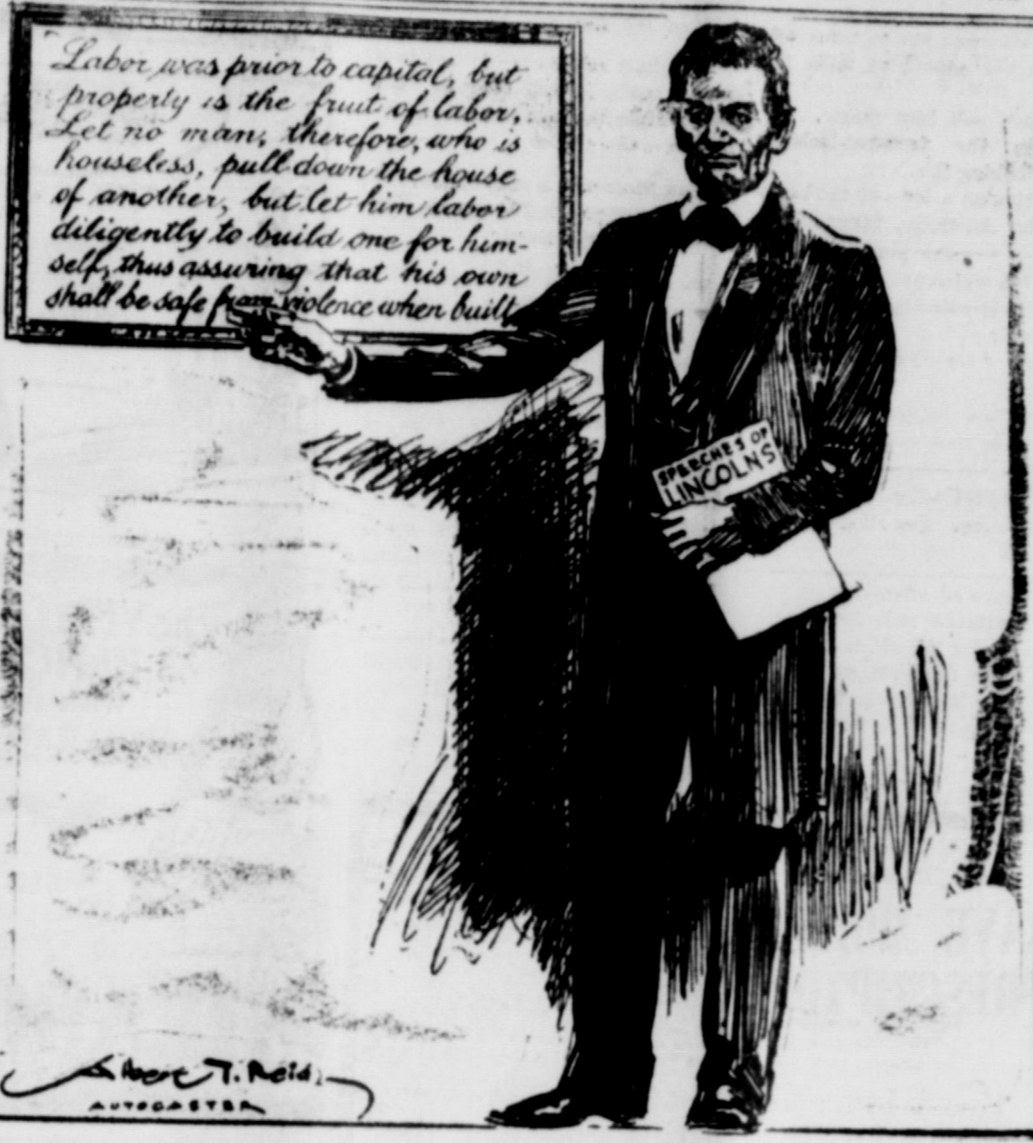 Labor was prior to capital, but
property is the fruit of labor.
Let no man, therefore, who is
houseless, pull down the house
of another, but let him labor
diligently to build one for him-
self, thus assuring that his own
shall be safe from violence when built
SPEECHES OF
LINCOLNS
Albert T. Reid
AUTOCASTER